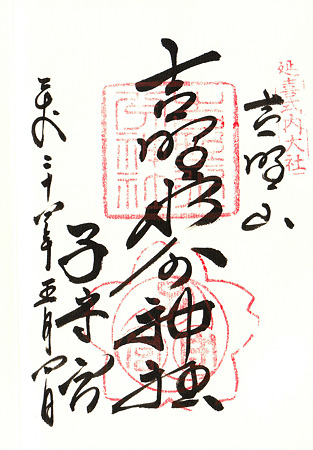 延喜式内大社
吉野山
吉野水分神社
子守宮
平成二十八年五月四日